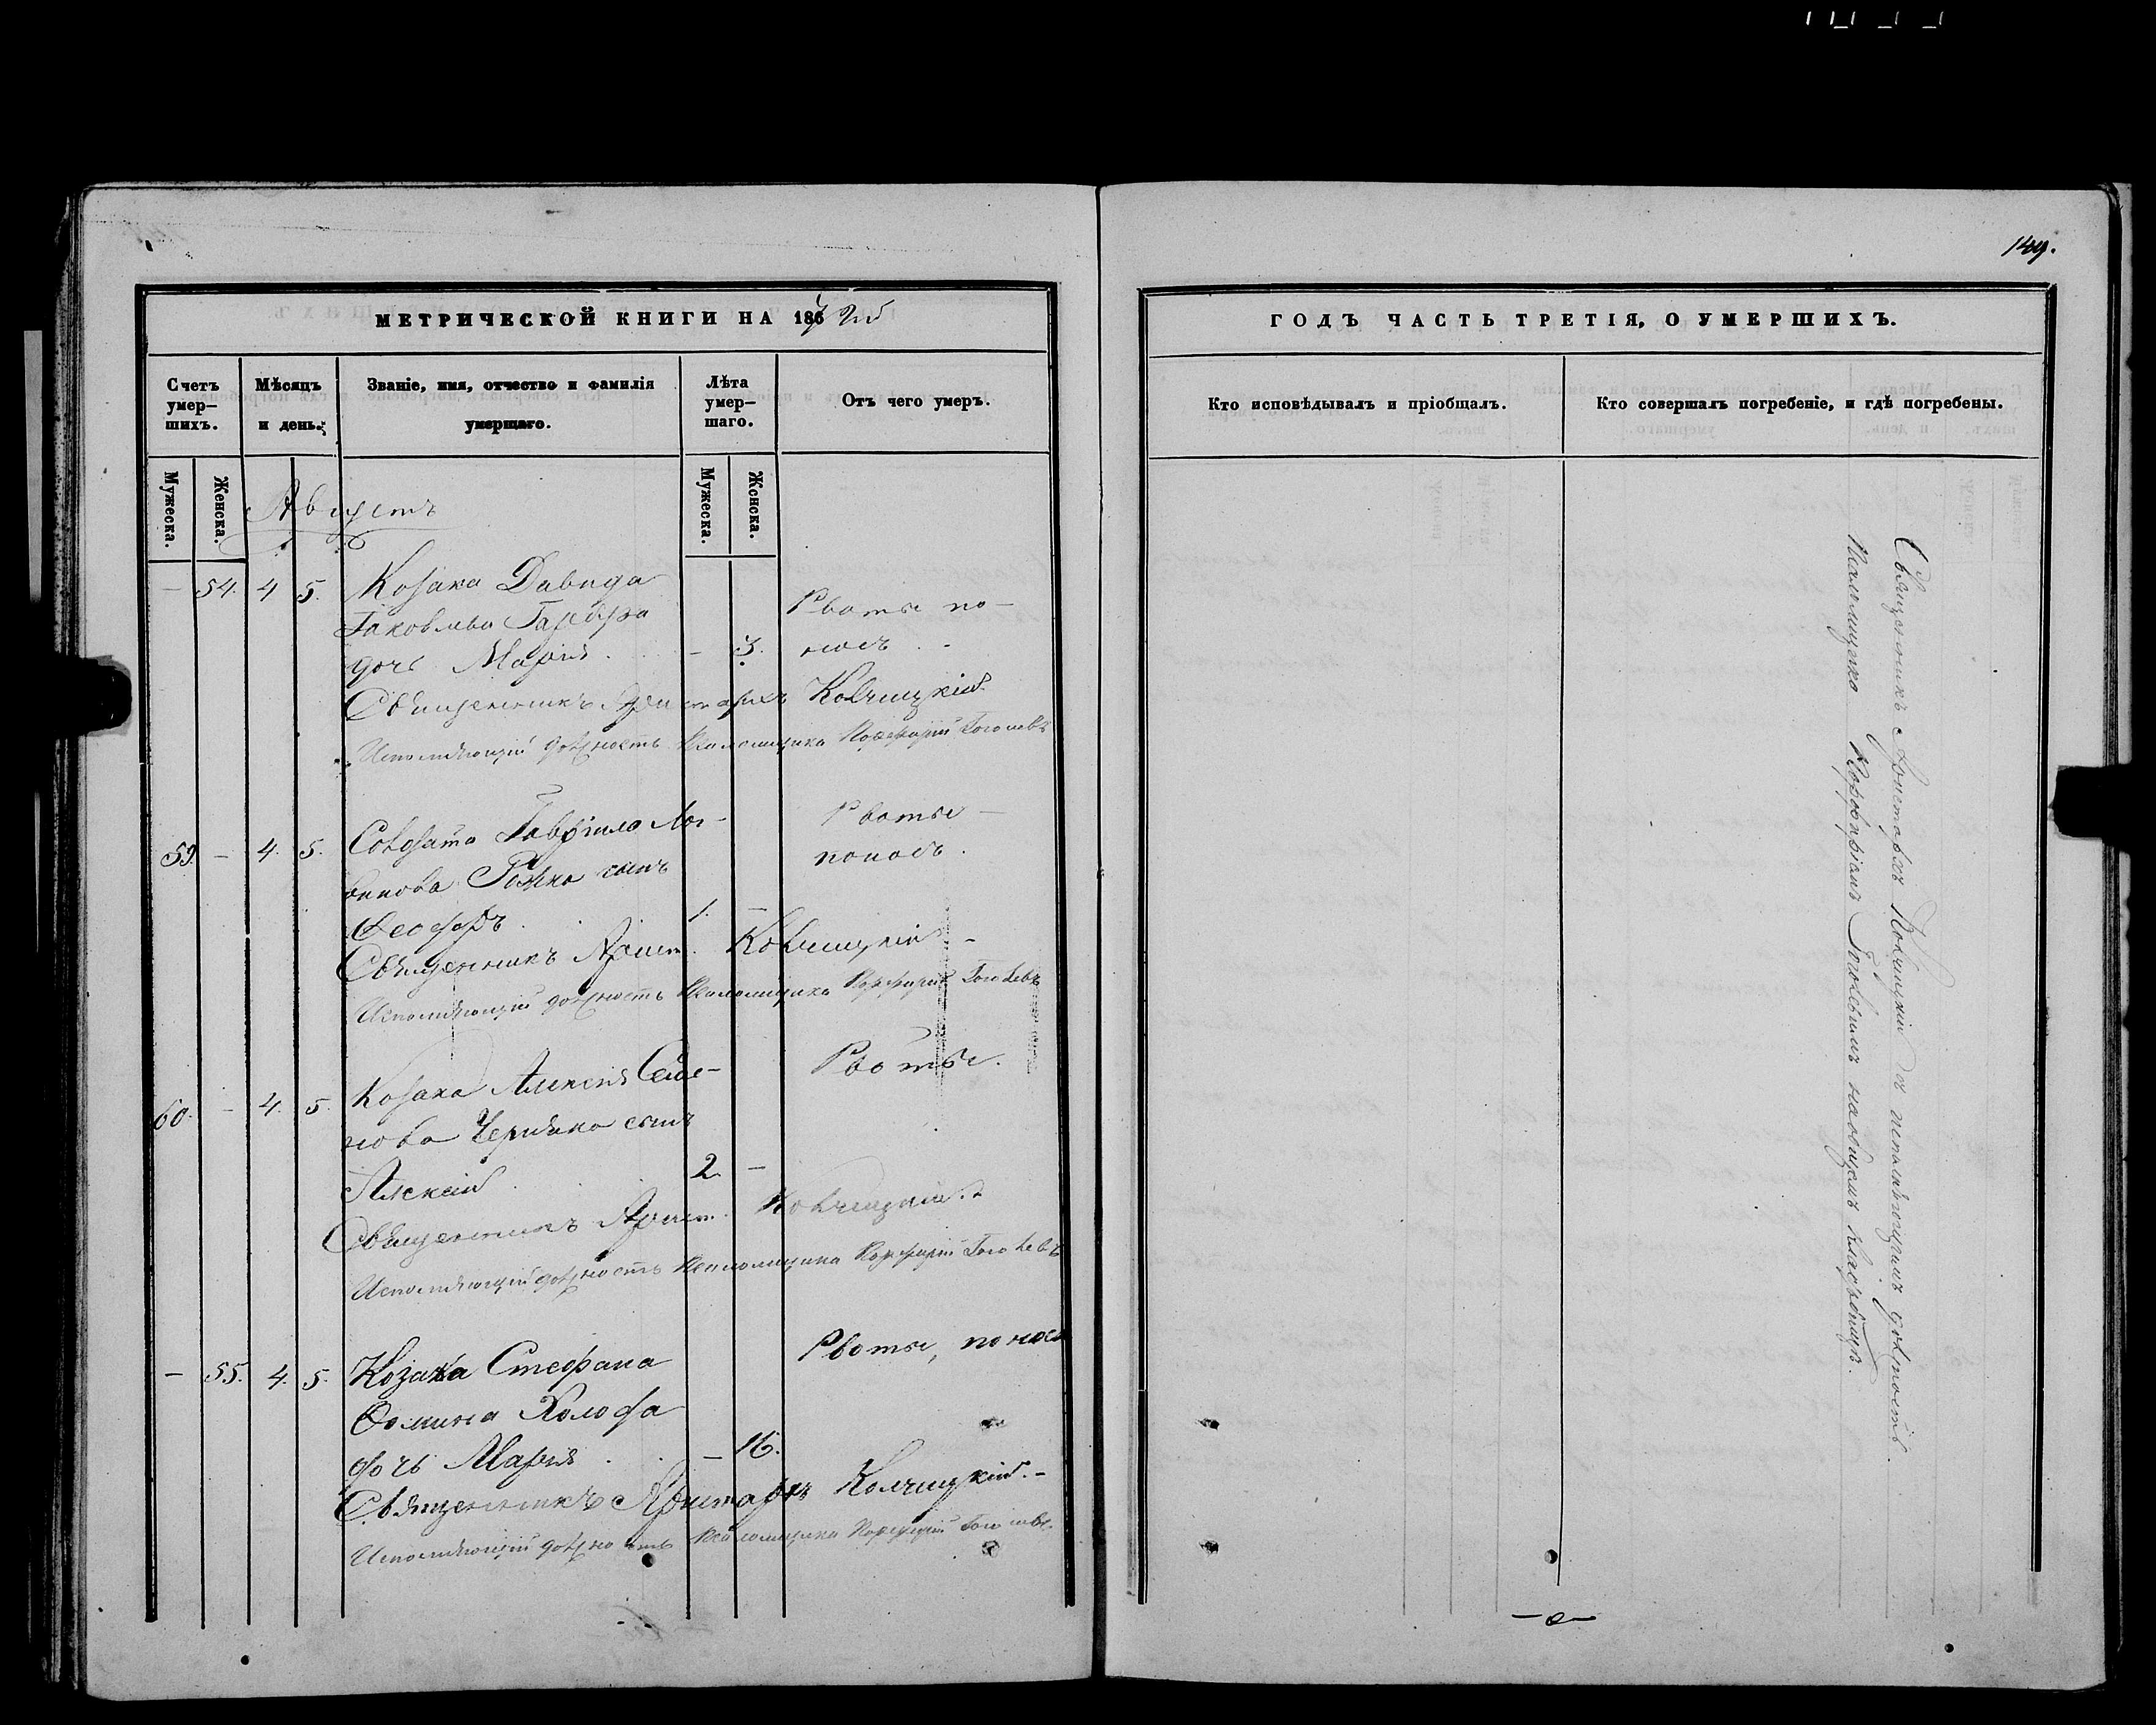 149.
МЕТРИЧЕСКОЙ КНИГИ НА 186 й
Счетъ умер-шихъ.
Мѣсяцъ и день.
Званіе, имя, отчество и фамилія умершаго.
Лѣта умер-шаго.
Отъ чего умеръ.
Мужеска.
Женска.
Мужеска.
Женска.
Августъ
— 54. 4 5. Козака Давида
Іаковлева
дочь Марія . — 3.
Рвоты по-
носъ .
Священникъ Аристархъ Колчицкій
Исполняющій должность Псаломщика Порфирій Гоголевъ
59. — 4. 5. Гавріила Лог-
винова Рожка сынъ
Ѳеодоръ . 1. —
Рвоты —
поносъ .
Священникъ Арист. Колчицкій —
Исполняющій должность Псаломщика Порфирій Гоголевъ
60. — 4. 5. Козака Алексія Семе-
нова Черняка сынъ
Алексій . 2 —
Рвоты.
Священникъ Арист. Колчицкій
Исполняющій должность Псаломщика Порфирій Гоголевъ
— 55. 4. 5. Козака Стефана
Ѳомина Холода
дочь Марія . . — 16.
Рвоты, поносъ
Священникъ Аристархъ Колчицкій. —
Исполняющій должность Псаломщика Порфирій Гоголевъ
ГОДЪ ЧАСТЬ ТРЕТІЯ, О УМЕРШИХЪ.
Кто исповѣдывалъ и пріобщалъ.
Кто совершалъ погребеніе, и гдѣ погребены.
Священникъ Аристархъ Колчицкій съ исполняющимъ должность
Псаломщика Порфиріемъ Гоголевымъ на общемъ кладбищѣ.